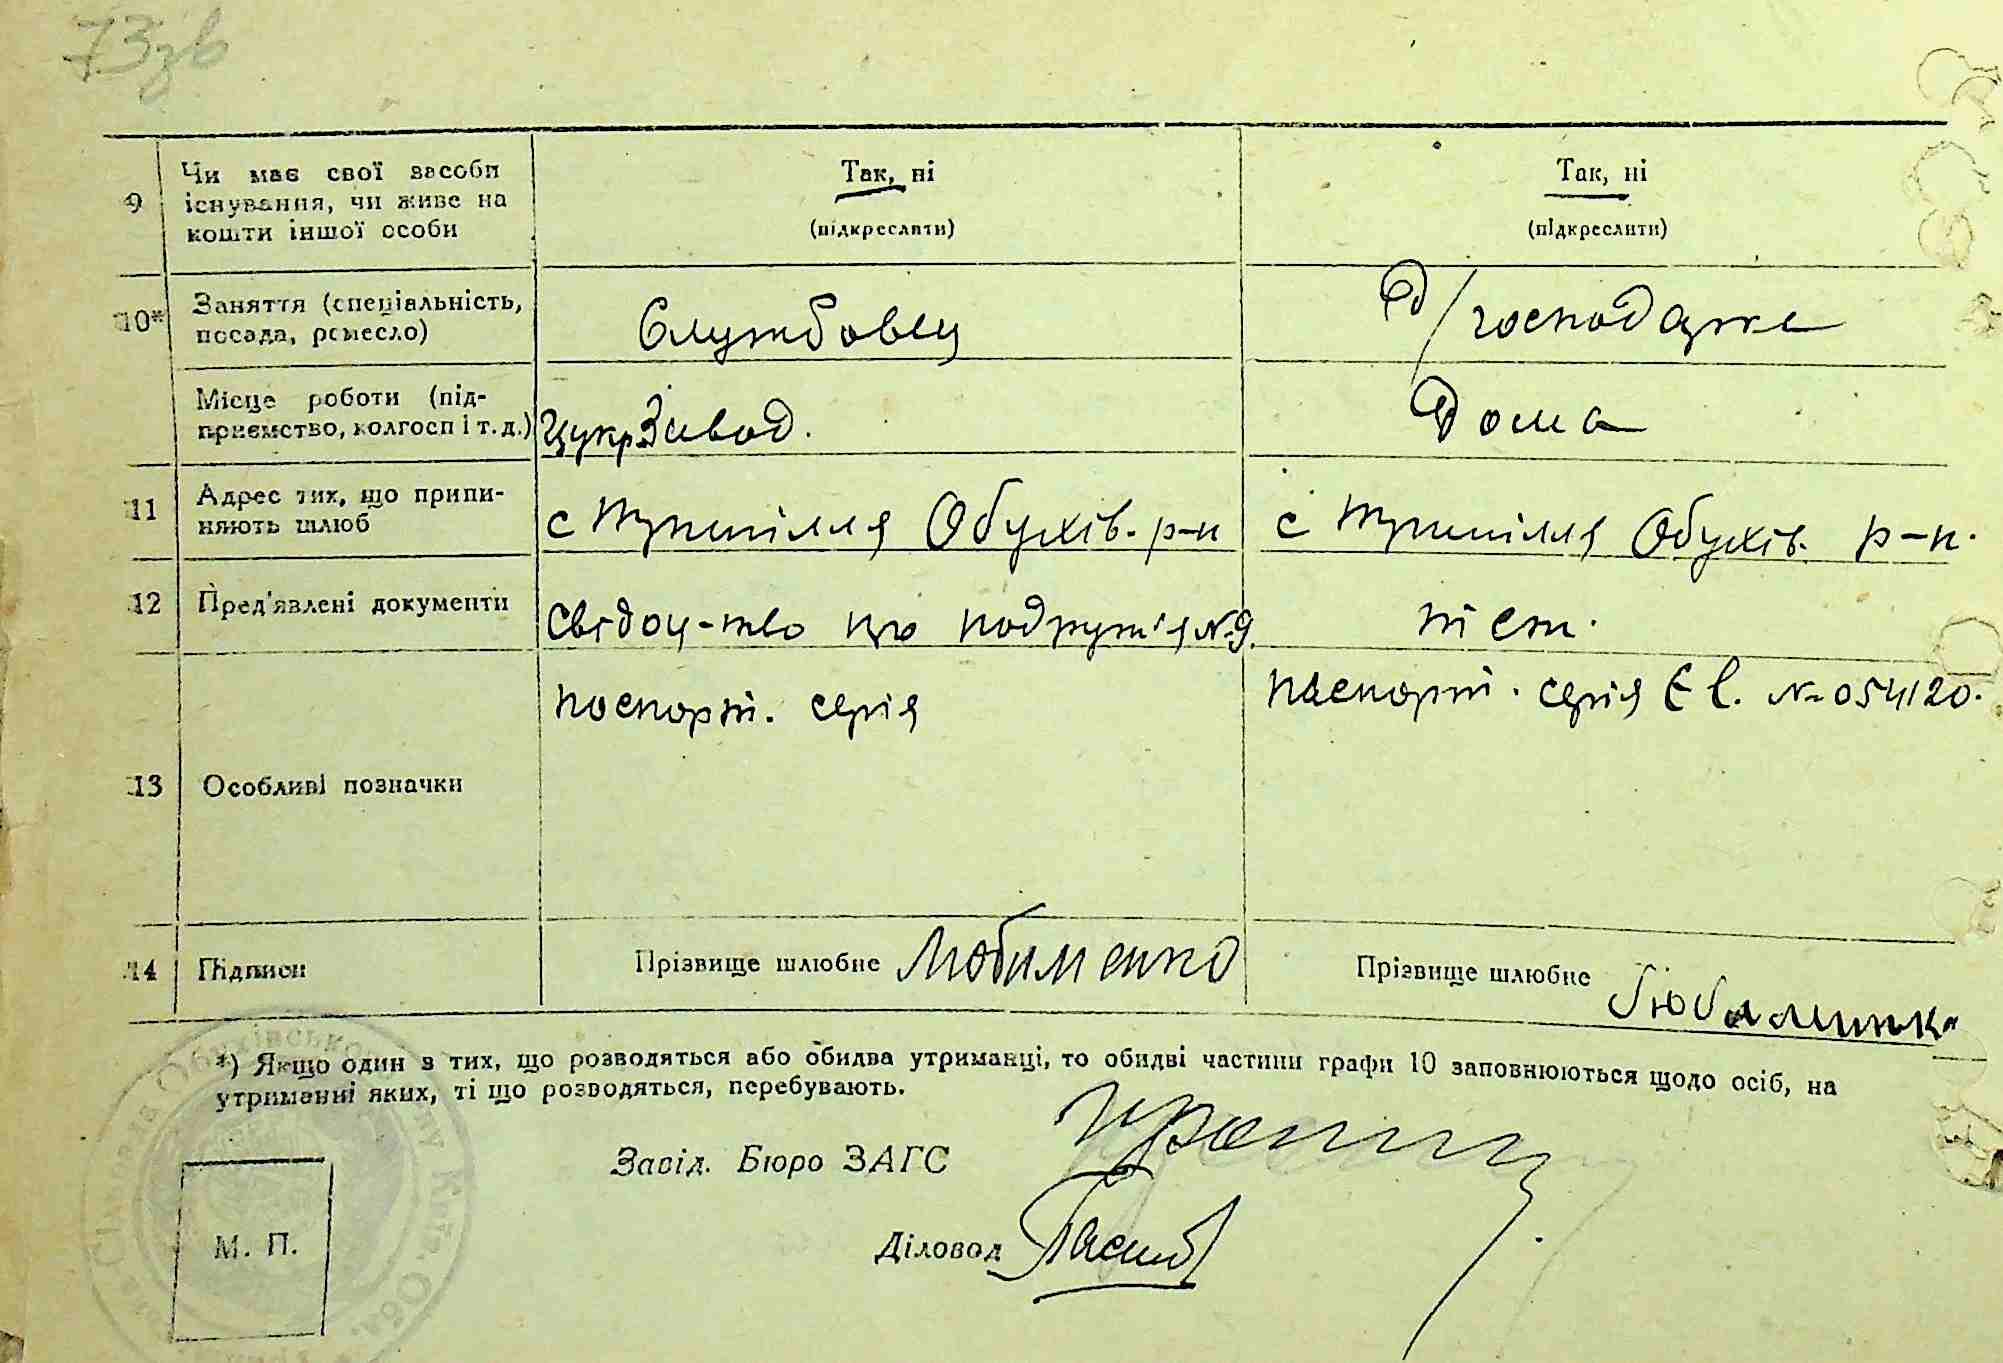 73зв
9
Чи має свої засоби
існування, чи живе на
кошти іншої особи
Так, ні
(підкреслити)
Так, ні
(підкреслити)
10*
Заняття (спеціальність,
посада, ремесло)
Службовец
Д/господарка
Місце роботи (під-
приємство, колгосп і т. д.)
цукрЗавод.
Дома
11
Адрес тих, що припи-
няють шлюб
с Трипілля Обухів. р-н
с Трипілля Обухів. р-н.
12
Пред'явлені документи
свідоц-тво про подружя №9.
тіст.
13
Особливі позначки
поспорт. серія
паспорт. серія №054120.
14
Підписи
Прізвище шлюбне Любименко
Прізвище шлюбне
*) Якщо один з тих, що розводяться або обидва утриманці, то обидві частини графи 10 заповнюються щодо осіб, на
утриманні яких, ті що розводяться, перебувають.
Завід. Бюро ЗАГС
Діловод
М. П.